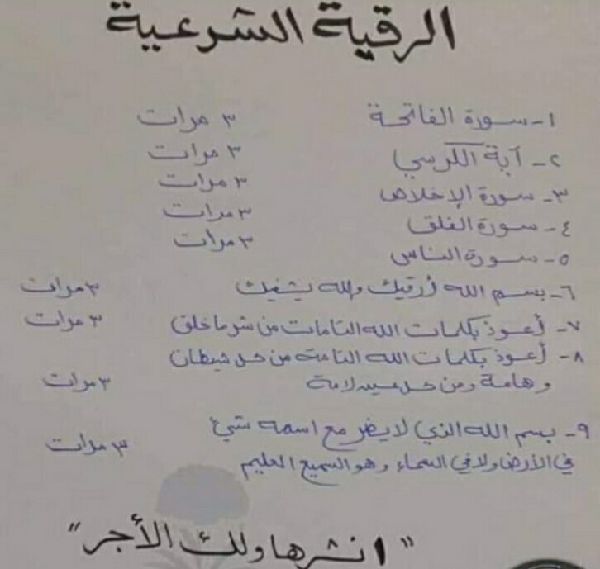 الرقية الشرعية
١- سورة الفاتحة ٣ مرات
٢- آية الكرسي ٣ مرات
٣- سورة الإخلاص ٣ مرات
٤- سورة الفلق ٣ مرات
٥- سورة الناس ٣ مرات
٦- بسم الله أرقيك والله يشفيك ٣ مرات
٧- أعوذ بكلمات الله التامات من شر ما خلق ٣ مرات
٨- أعوذ بكلمات الله التامة من كل شيطان
وهامة ومن كل عين لامة ٣ مرات
٩- بسم الله الذي لا يضر مع اسمه شيئ
في الأرض ولا في السماء وهو السميع العليم ٣ مرات
"انشرها ولك الأجر"